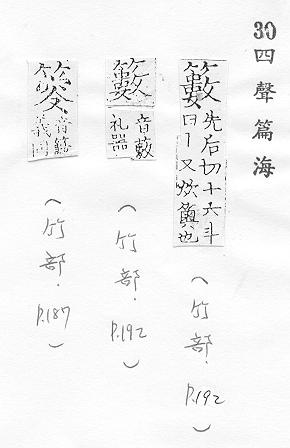 30
四聲篇海
籔先后切十六斗
曰丨又炊䉛也
(竹部.P.192)
籔音藪
礼器
(竹部.P.192)
音籔
義同
(竹部.P.187)